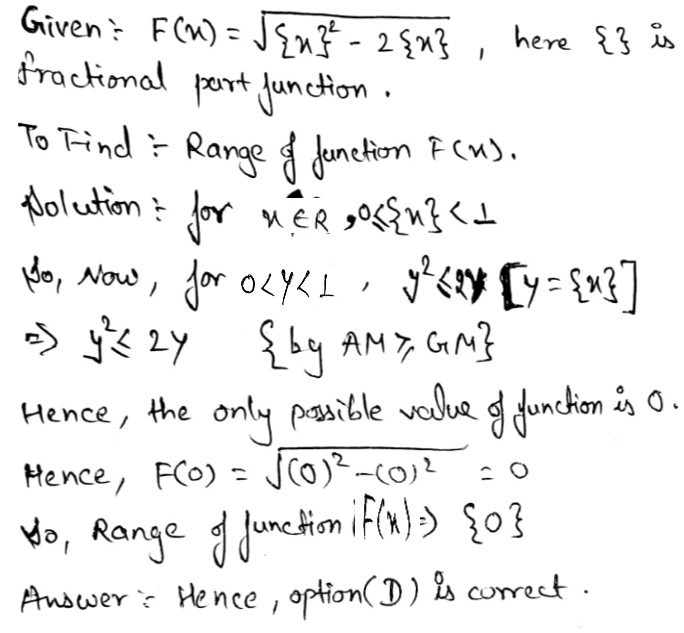 Given :- F(x) = √{x}² - 2{x} , here {} is
fractional part function .
To Find :- Range of function F(x).
Solution :- for x ∈ R , 0≤{x}<1
So, Now, for 0<y<1 , y²≤2y [y = {x}]
=> y² ≤ 2y {by AM ≥ GM}
Hence, the only possible value of function is 0.
Hence, F(0) = √(0)² - (0)² = 0
So, Range of function F(x) => {0}
Answer :- Hence, option (D) is correct .